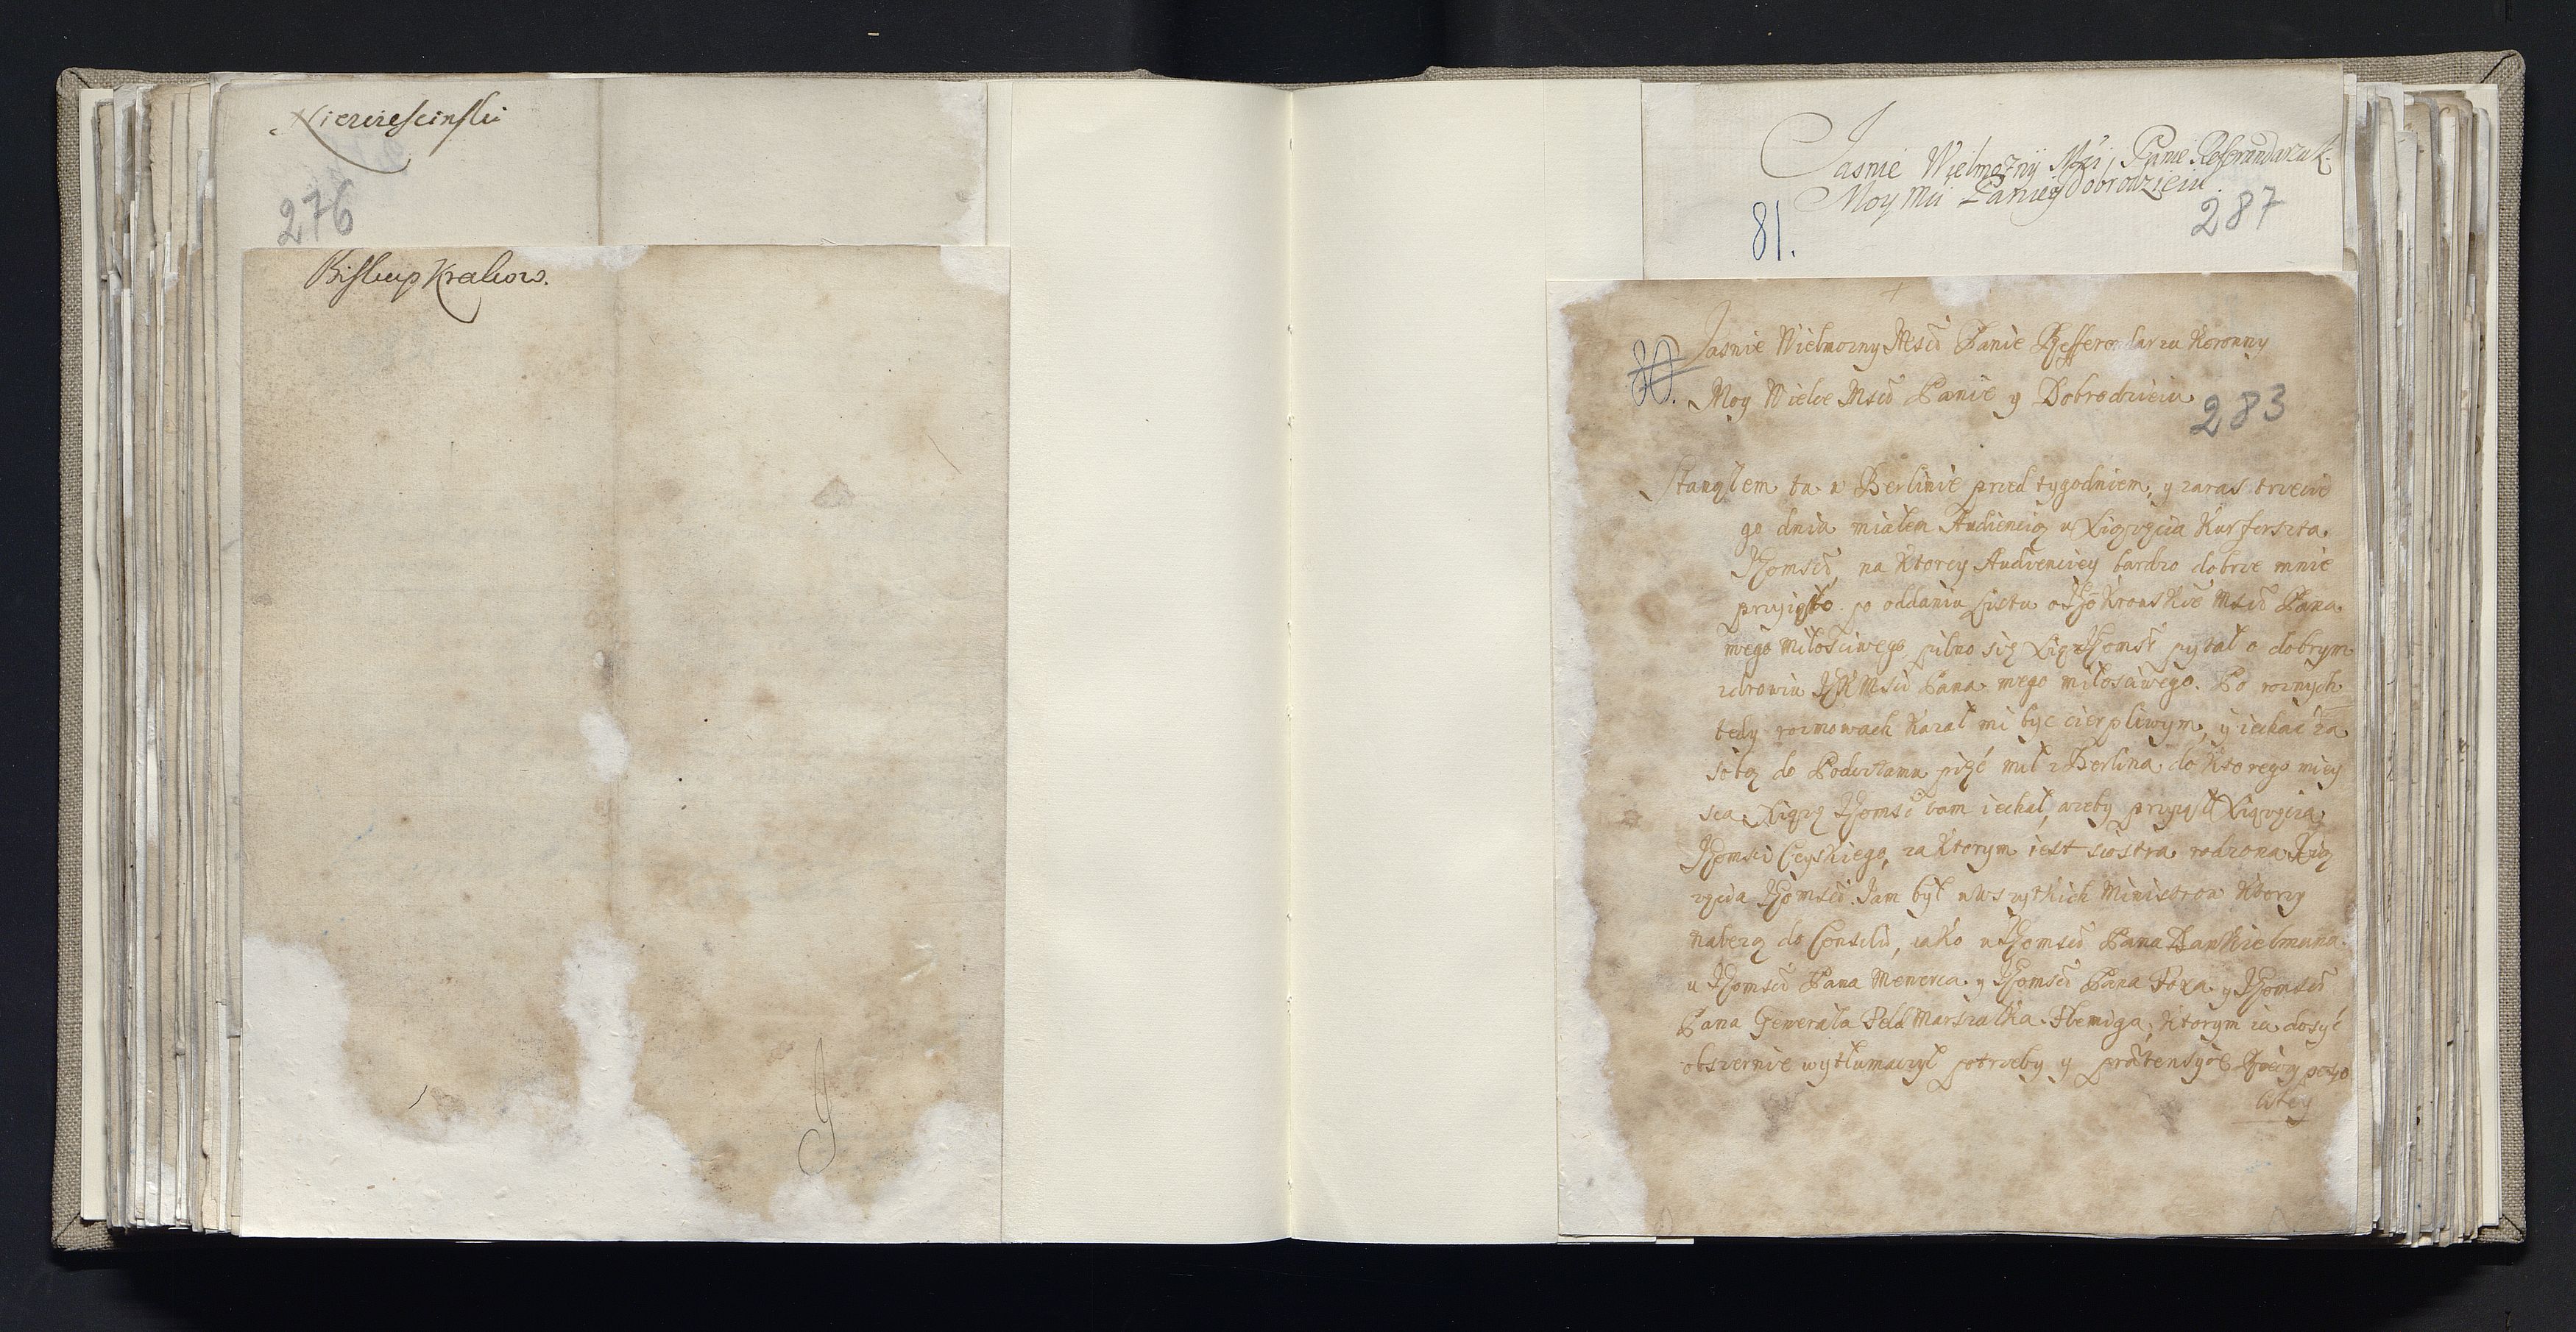 Niewiescinski
276
Biskup Krakow.
Jasnie Wielmożny Mći Panie Referendarzu k.
Moy Mći Panie y Dobrodzieiu
81.
287
Jasnie Wielmozny Mscī Panie Refferendarzu Koronny
80.
Moy Wielce Mscī Panie y Dobrodzieiu
283
Stanąłem tu w Berlinie przed tygodniem, y zaras trzecie
go dnia miałem Audiencią u Xiązęcia Kurferszta
Jegomscī, na Ktorey Audiencyey bardzo dobrze mnie
przyięto. po oddaniu listu od Jo Kro Mscī Pana
mego miłosciwego, pilno się Xiąze Jegomsć pytał o dobrym
zdrowiu JK Mscī Pana mego miłosciwego. Po roznych
tedy rozmowach Kazał mi być cierpliwym, y iechać za
sobą do Podcztamu pięć mil z Berlina do Ktorego miey
sca Xiąze Jegomsć tam iechał, azeby przyiął Xiązęcia
Jegomsci Ceyskiego, za Ktorym iest siostra rodzona Xią
zęcia Jegomsci. Jam był u wszytkich Ministrow Ktorzy
należą do Consilii, iako u Jegomscī Pana Dankielmana
u Jegomscī Pana Menerca y Jegomscī Pana Foxa y Jegomscī
Pana Generała Feld Marszałka Flemiga, Ktorym ia dosyć
obszernie wytłumaczył potrzeby y prætensyie Rzeczy pospo
litey